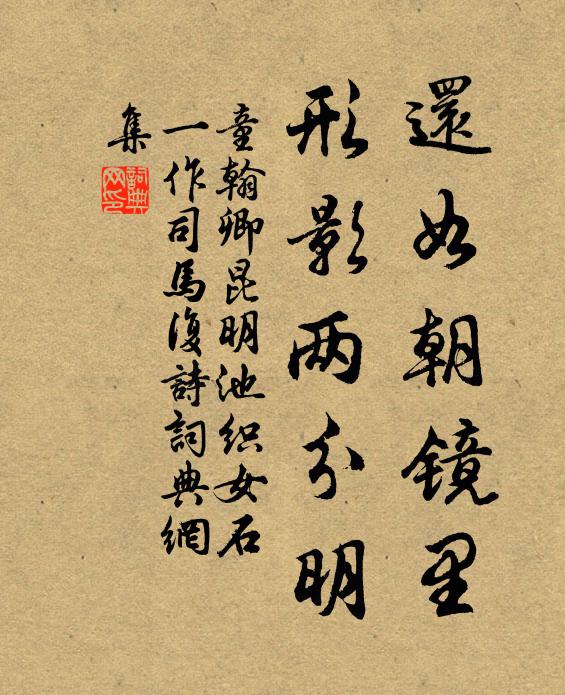 還如朝镜里
形影两分明
童翰卿昆明池织女石
一作司馬復詩詞典網
集
詞典网印